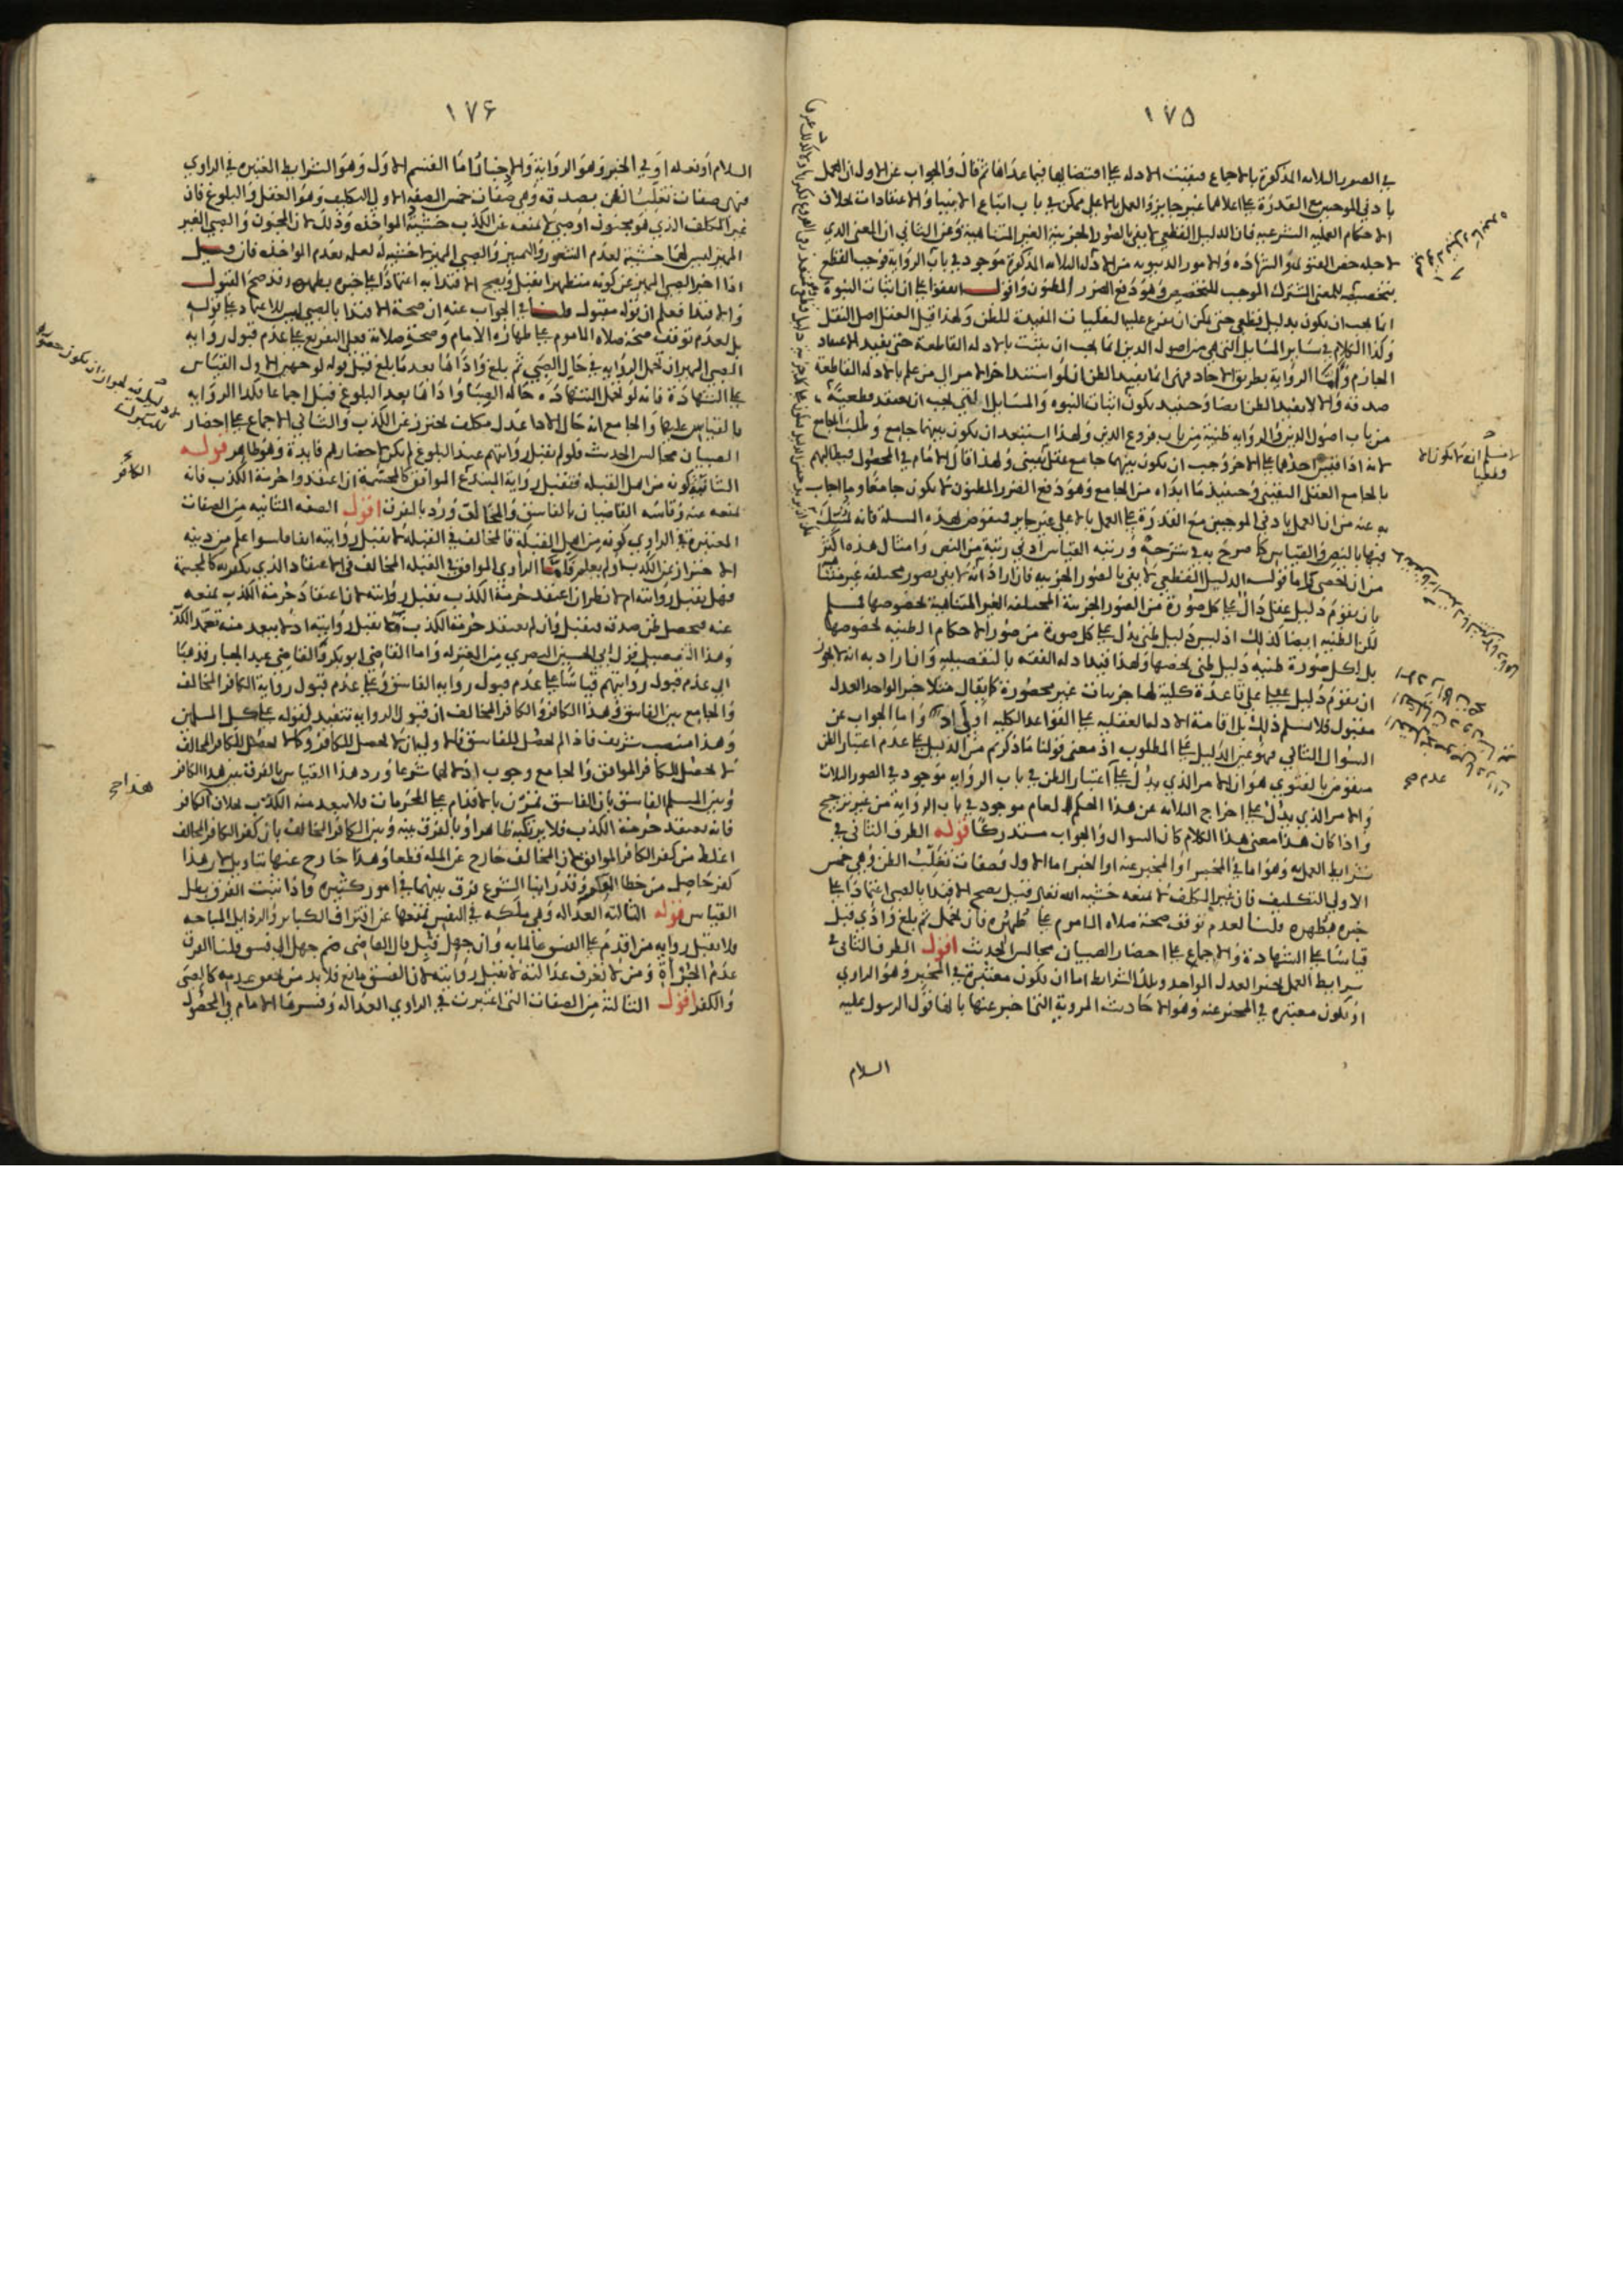 ١٧٥
في الصور الثلاثة المذكورة بالاجماع فبقيت الادلة على اقتضائها فيما عداها ثم قال والجواب عن الاول ان العمل
بادنى الموجبين مع القدرة على اعلاهما غير جايز والعمل بالاعلى ممكن في باب اتباع الانبياء والاعتقادات بخلاف
الاحكام العملية الشرعية فان الدليل القطعي لا يفي بالصور الجزئية الغير المتناهية وعن الثاني ان المعنى الذي
لاجله خص الفتوى والشهادة والامور الدنيوية من الادلة الثلاثة المذكورة موجود في باب الرواية فوجب القطع
بتخصيصه للمعنى المشترك الموجب للتخصيص وهو دفع الضرر المظنون واقول اتفقوا على ان اثبات النبوة
انما يجب ان يكون بدليل قطعي حتى يمكن ان يتفرع عليها النقليات المفيدة للظن ولهذا قيل العقل اصل النقل
وكذا الكلام في ساير المسايل التي هي من اصول الدين انما يجب ان يثبت بالادلة القاطعة حتى يفيد الاعتقاد
الجازم واما الرواية بطريق الاحاد فهي انما تفيد الظن
صدقه والا لا يفيد الظن ايضا وحينئذ يكون اثبات النبوة والمسايل التي يجب ان يعتقد قطعية
من باب اصول الدين والرواية ظنية من باب فروع الدين ولهذا استبعد ان يكون بينهما جامع وطلب الجامع
لانه اذا قيس احدهما على الاخر وجب ان يكون بينهما جامع عقلي يقيني ولهذا قال الامام في المحصول فيطالبهم
بالجامع العقلي اليقيني وحينئذ ما ابداه من الجامع وهو دفع الضرر المظنون لا يكون جامعا وما اجاب
به عنه من ان العمل بادنى الموجبين مع القدرة على العمل بالاعلى غير جايز فمنقوض بهذه المسئلة فانه تمسك
فيها بالنص والقياس كما صرح به في شرحه ورتبة القياس ادنى رتبة من النص وامثال هذه اكثر
من ان تحصى واما قوله الدليل القطعي لا يفي بالصور الجزئية فان اراد انه لا يفي بصور مختلفة غير متناهية
بان يقوم دليل عقلي دال على كل صورة من الصور الجزئية المختلفة الغير المتناهية بخصوصها فمسلم
لكن الظنية ايضا كذلك اذ ليس دليل ظني يدل على كل صورة من صور الاحكام الظنية بخصوصها
بل لكل صورة ظنية دليل ظني يخصها ولهذا قيد ادلة الفقه بالتفصيلية وان اراد به انه لا يجوز
ان يقوم دليل عقلي على قاعدة كلية لها جزئيات غير محصورة كما يقال مثلا خبر الواحد العدل
مقبول فلا نسلم ذلك بل اقامة الادلة العقلية على القواعد الكلية اولى واما الجواب عن
السؤال الثاني فهو عين الدليل على المطلوب اذ معنى قولنا ما ذكرتم من الدليل على عدم اعتبار الظن
منقوض بالفتوى هو ان الامر الذي يدل على اعتبار الظن في باب الرواية موجود في الصور الثلاث
والامر الذي يدل على اخراج الثلاثة عن هذا الحكم العام موجود في باب الرواية من غير ترجيح
واذا كان هذا معنى هذا الكلام كان السؤال والجواب مستدركا قوله الطرف الثاني في
شرايط العمل به وهو اما في المخبر او المخبر عنه او الخبر اما الاول فصفات تغلب الظن وهي خمس
الاولى التكليف فان غير المكلف لا تمنعه خشية الله تعالى قيل يصح الاقتداء بالصبي اعتمادا على
خبره بطهره قلنا لعدم توقف صحة صلاة الماموم على طهره فان تحمل ثم بلغ وادى قبل
قياسا على الشهادة والاجماع على احضار الصبيان مجالس الحديث اقول الطرف الثاني في
شرايط العمل بخبر العدل الواحد وتلك الشرايط اما ان يكون معتبرة في المخبر وهو الراوي
او يكون معتبرة في المخبر عنه وهو الاحاديث المروية التي اخبر عنها بانها قول الرسول عليه
السلام
لا نسلم انه لا يكون الا
وقطعيا
عدم صح
١٧۶
السلام او فعله او في الخبر وهو الرواية والاخبار واما القسم الاول وهو الشرايط المعتبرة في الراوي
فهي صفات تغلب الظن بصدقه وهي صفات خمس الصفة الاولى التكليف وهو العقل والبلوغ فان
غير المكلف الذي هو مجنون او صبي لا تمنعه عن الكذب خشية المواخذة وذلك لان المجنون والصبي الغير
المميز ليس لهما خشية لعدم الشعور والتمييز والصبي المميز لا خشية له لعلمه بعدم المواخذة فان قيل
اذا اخبر الصبي المميز عن كونه متطهرا يقبل ويصح الاقتداء به اعتمادا على خبره بطهره وقد صح القبول
والاقتداء فعلم ان قوله مقبول قلنا في الجواب عنه ان صحة الاقتداء بالصبي ليس للاعتماد على قوله
بل لعدم توقف صحة صلاة الماموم على طهارة الامام وصحة صلاته فعلى التفريع على عدم قبول رواية
الصبي المميز ان تحمل الرواية في حال الصبي ثم بلغ واداها بعد ما بلغ قبل قوله لوجهين الاول القياس
على الشهادة فانه لو تحمل الشهادة حالة الصبا واداها بعد البلوغ قبل اجماعا فكذا الرواية
بالقياس عليها والجامع انه حال الاداء عدل مكلف يحترز عن الكذب والثاني الاجماع على احضار
الصبيان مجالس الحديث فلو لم يقبل روايتهم عند البلوغ لم يكن لاحضارهم فايدة وهو ظاهر قوله
الثانية كونه من اهل القبلة فتقبل رواية المبتدع الموافق كالمجسمة ان اعتقدوا حرمة الكذب فانه
تمنعه عنه وقاسه القاضيان بالفاسق والمخالف ورد بالفرق اقول الصفة الثانية من الصفات
المعتبرة في الراوي كونه من اهل القبلة فالمخالف في القبلة لا تقبل روايته اتفاقا سواء علم من دينه
الاحتراز عن الكذب او لم يعلم واما الراوي الموافق في القبلة المخالف في الاعتقاد الذي يكفر به كالمجسمة
فهل يقبل روايته ام لا نظر ان اعتقد حرمة الكذب تقبل روايته لان اعتقاد حرمة الكذب تمنعه
عنه فيحصل ظن صدقه فيقبل وان لم يعتقد حرمة الكذب فلا تقبل روايته اذ لا يبعد منه تعمد الكذب
وهذا التفصيل قول ابي الحسين البصري من المعتزلة واما القاضي ابو بكر والقاضي عبد الجبار فذهبا
الى عدم قبول روايتهم قياسا على عدم قبول رواية الفاسق وعلى عدم قبول رواية الكافر المخالف
والجامع بين الفاسق وهذا الكافر والكافر المخالف ان قبول الرواية تنفيذ لقوله على كل المسلمين
وهذا منصب شريف فاذا لم يحصل للفاسق فاولى ان لا يحصل للكافر وكما لا يحصل للكافر المخالف
لا يحصل للكافر الموافق والجامع وجوب اذلالهما شرعا ورد هذا القياس بالفرق بين هذا الكافر
وبين المسلم الفاسق بان الفاسق تمرن بالاقدام على المحرمات فلا يبعد منه الكذب بخلاف الكافر
فانه يعتقد حرمة الكذب فلا يرتكبه ظاهرا وبالفرق بينه وبين الكافر المخالف بان كفر الكافر المخالف
اغلظ من كفر الكافر الموافق لان المخالف خارج عن الملة قطعا وهذا خارج عنها بتاويل اذ هذا
كفر حاصل من خطا الفكر وقد راينا الشرع فرق بينهما في امور كثيرة واذا ثبت الفرق بطل
القياس قوله الثالثة العدالة وهي ملكة في النفس تمنعها عن اقتراف الكباير والرذايل المباحة
فلا تقبل رواية من اقدم على الفسق عالما به وان جهل قبل قال القاضي ضم جهل الى فسق قلنا الفرق
عدم الجراة ومن لا تعرف عدالته لا تقبل روايته لان الفسق مانع فلا بد من تحقق عدمه كالصبي
والكفر اقول الثالثة من الصفات التي اعتبرت في الراوي العدالة وفسرها الامام في المحصول
الكافر
هذا صح